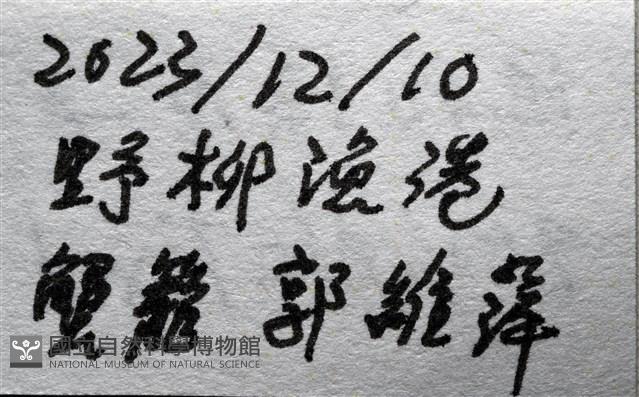 2023/12/10
野柳漁港
蟹籠 郭維萍
國立自然科學博物館
NATIONAL MUSEUM OF NATURAL SCIENCE